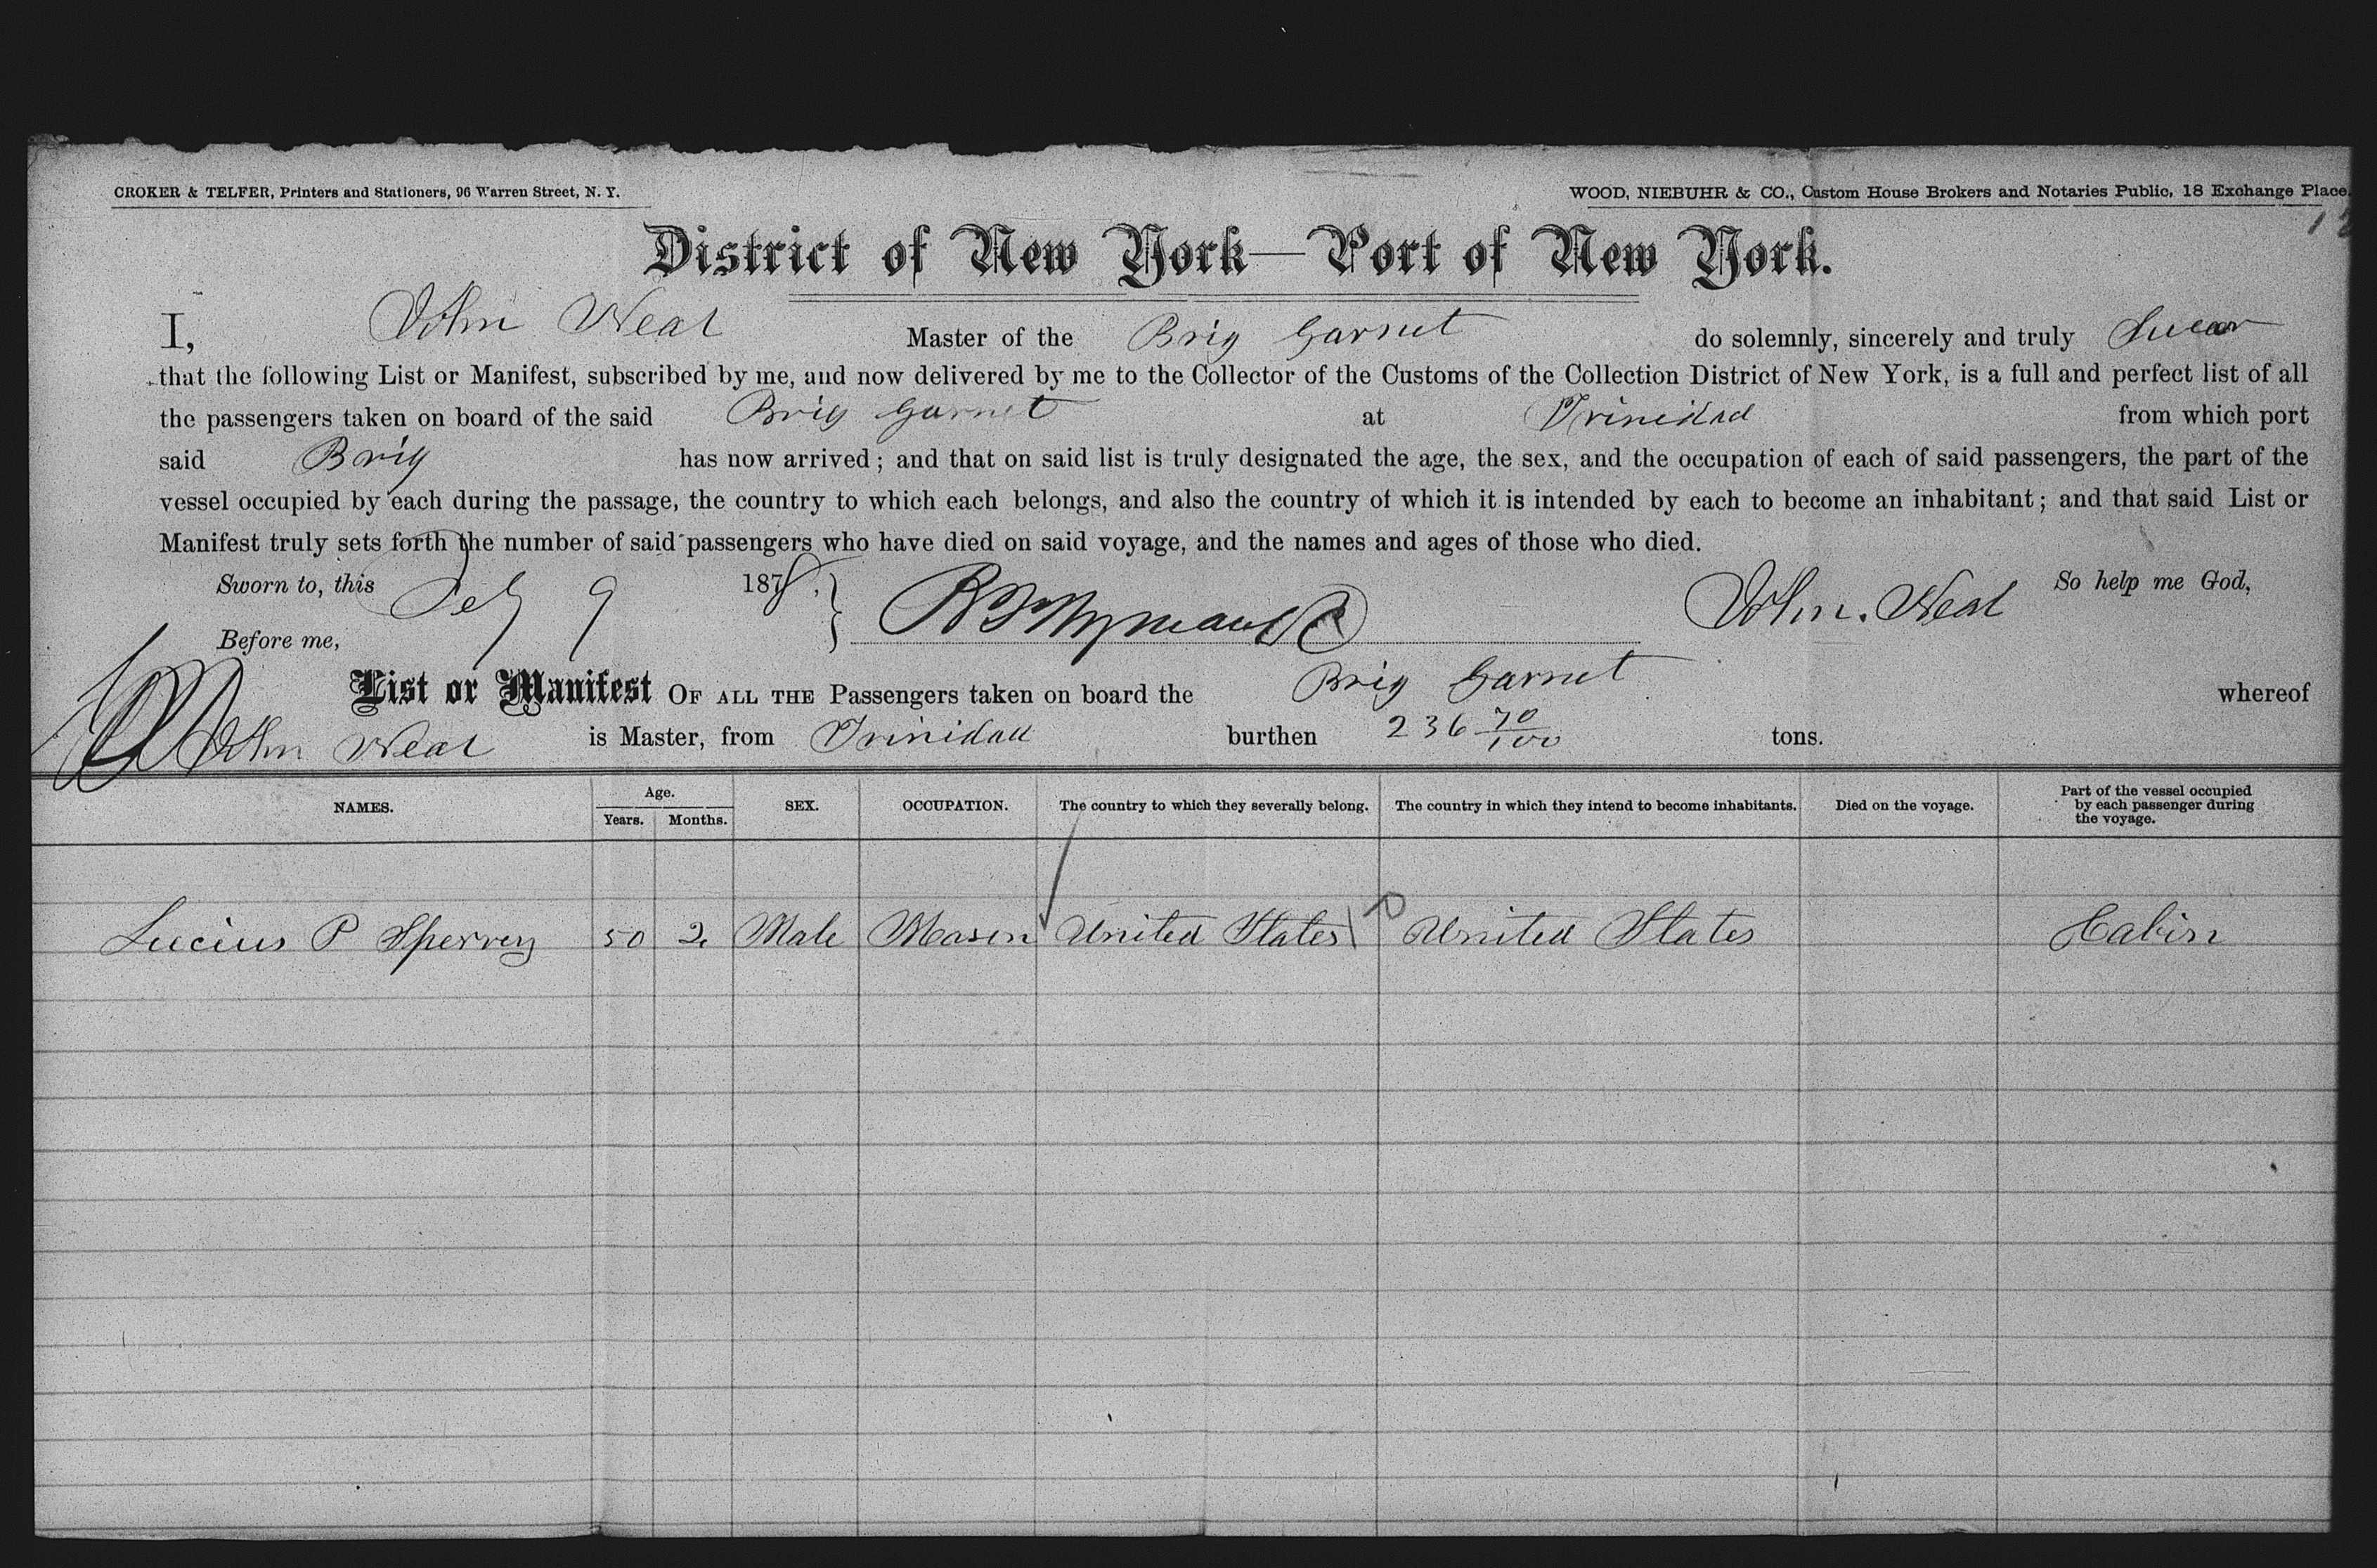 CROKER & TELFER, Printers and Stationers, 96 Warren Street, N. Y.
WOOD, NIEBUHR & CO., Custom House Brokers and Notaries Public, 18 Exchange Place.
District of New York—Port of New York.
I, John Neal Master of the Brig Garnet do solemnly, sincerely and truly Swear
that the following List or Manifest, subscribed by me, and now delivered by me to the Collector of the Customs of the Collection District of New York, is a full and perfect list of all
the passengers taken on board of the said Brig Garnet at Trinidad from which port
said Brig has now arrived; and that on said list is truly designated the age, the sex, and the occupation of each of said passengers, the part of the
vessel occupied by each during the passage, the country to which each belongs, and also the country of which it is intended by each to become an inhabitant; and that said List or
Manifest truly sets forth the number of said passengers who have died on said voyage, and the names and ages of those who died.
Sworn to, this 9 1878. John. Neal So help me God,
Before me,
List or Manifest OF ALL THE Passengers taken on board the Brig Garnet whereof
John Neal is Master, from Trinidad burthen 236 70/100 tons.
NAMES. Age. Years. Months. SEX. OCCUPATION. The country to which they severally belong. The country in which they intend to become inhabitants. Died on the voyage. Part of the vessel occupied by each passenger during the voyage.
Lucius P Sperrey 50 2 Male Mason United States United States Cabin